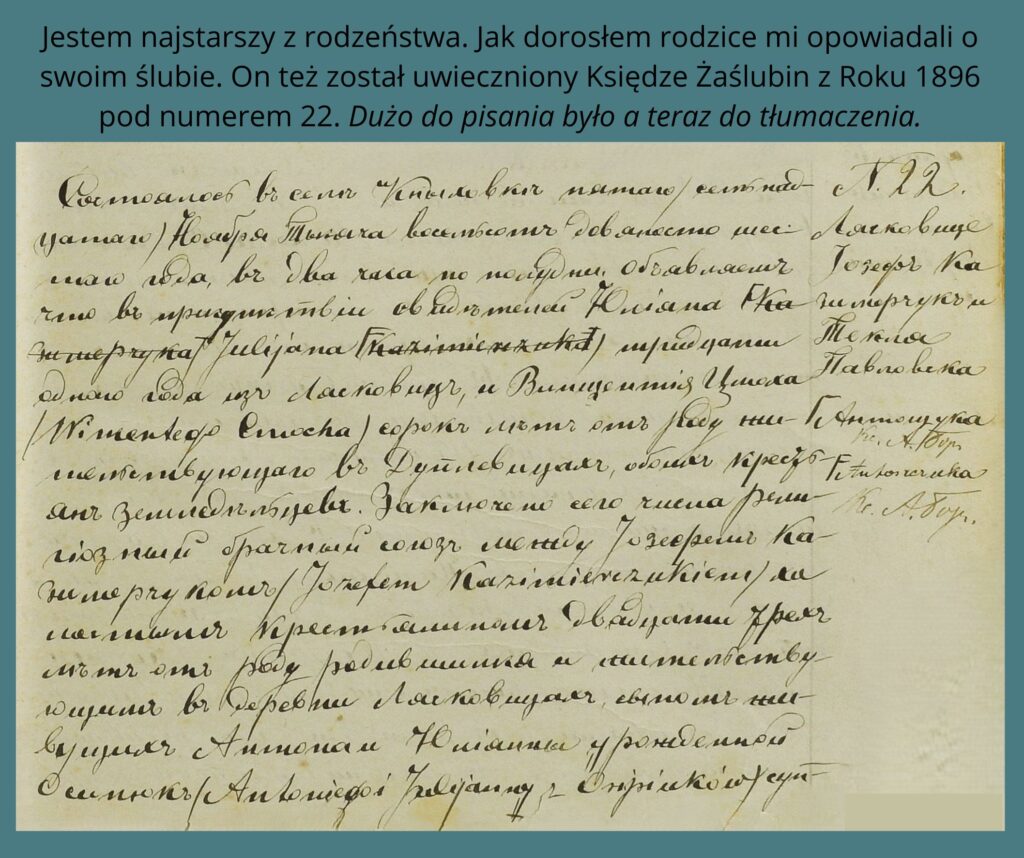 Jestem najstarszy z rodzeństwa. Jak dorosłem rodzice mi opowiadali o
swoim ślubie. On też został uwieczniony Księdze Żaślubin z Roku 1896
pod numerem 22. Dużo do pisania było a teraz do tłumaczenia.
Состоялось въ селѣ Кныловкѣ пятаго / семьнад-
цатаго / Ноября Тысяча восемьсотъ девяносто шес-
таго года, въ два часа по полудни. Объявляемъ
что въ присутствіи свидѣтелей Юліана Ка
зимерчука Julijana Kazimierczuka) тридцати
одного года изъ Лясковицъ, и Винцентія Цмоха
(Wincentego Cmocha) сорокъ лѣтъ отъ роду жи-
тельствующаго въ Дуплевицахъ, обоихъ кресть-
янъ земледѣльцевъ. Заключено сего числа рели-
гіозный брачный союзъ между Іозефемъ Ка-
зимерчукомъ / Józefem Kazimierczukiem / хо
лостымъ крестьяниномъ двадцати трехъ
лѣтъ отъ роду родившимся и жительству-
ющимъ въ деревни Лясковицахъ, сыномъ жи-
вущихъ Антона и Юліанны урожденной
Осипюкъ / Antoniego i Julijanny z Osipiuków / суп-
N. 22.
Лясковице
Іозефъ Ка
зимерчукъ и
Текля
Павловска
Антощука
Кс. А. Бор.
Antoszczuka
Кс. А. Бор.